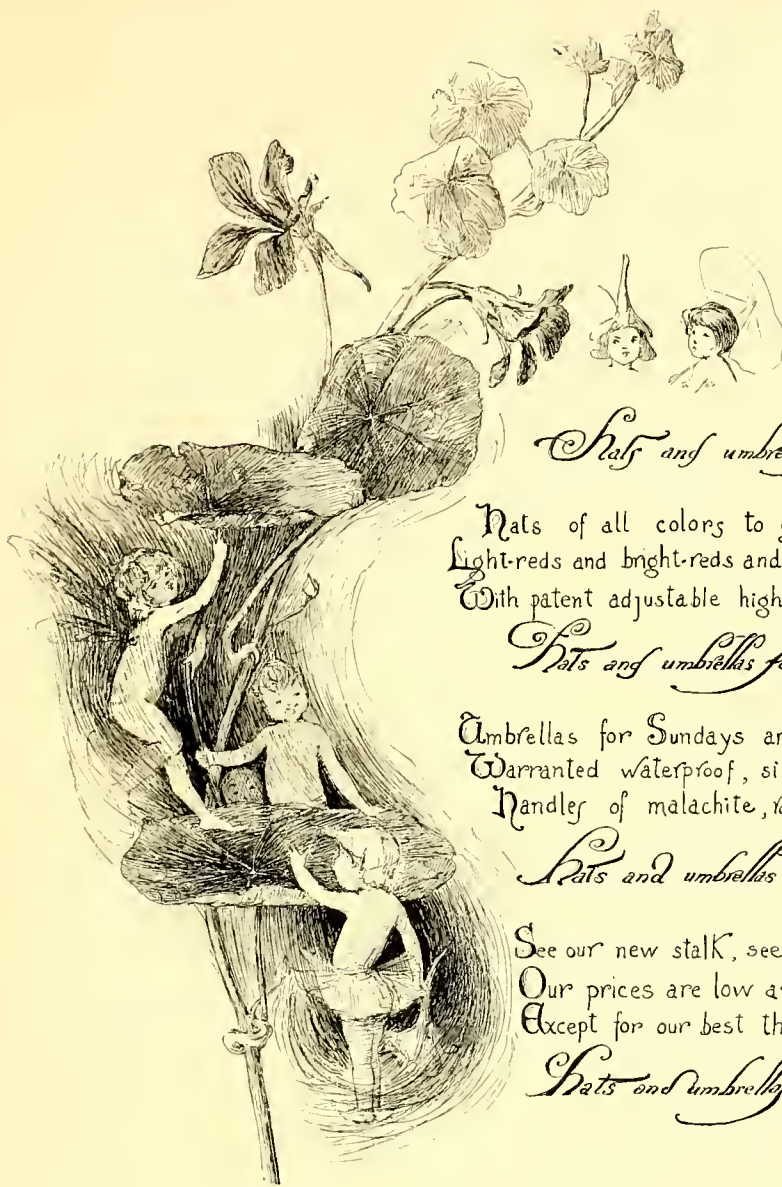 Hats and umbre
Hats of all colors to
Light-reds and bright-reds and
With patent adjustable high
Hats and umbrellas fo
Umbrellas for Sundays an
Warranted waterproof, si
Handles of malachite,
Hats and umbrellas
See our new stalk, see
Our prices are low a
Except for our best th
Hats and umbrellas